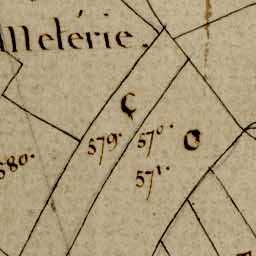 Metérie.
Ç
579.
570.
O
580.
571.